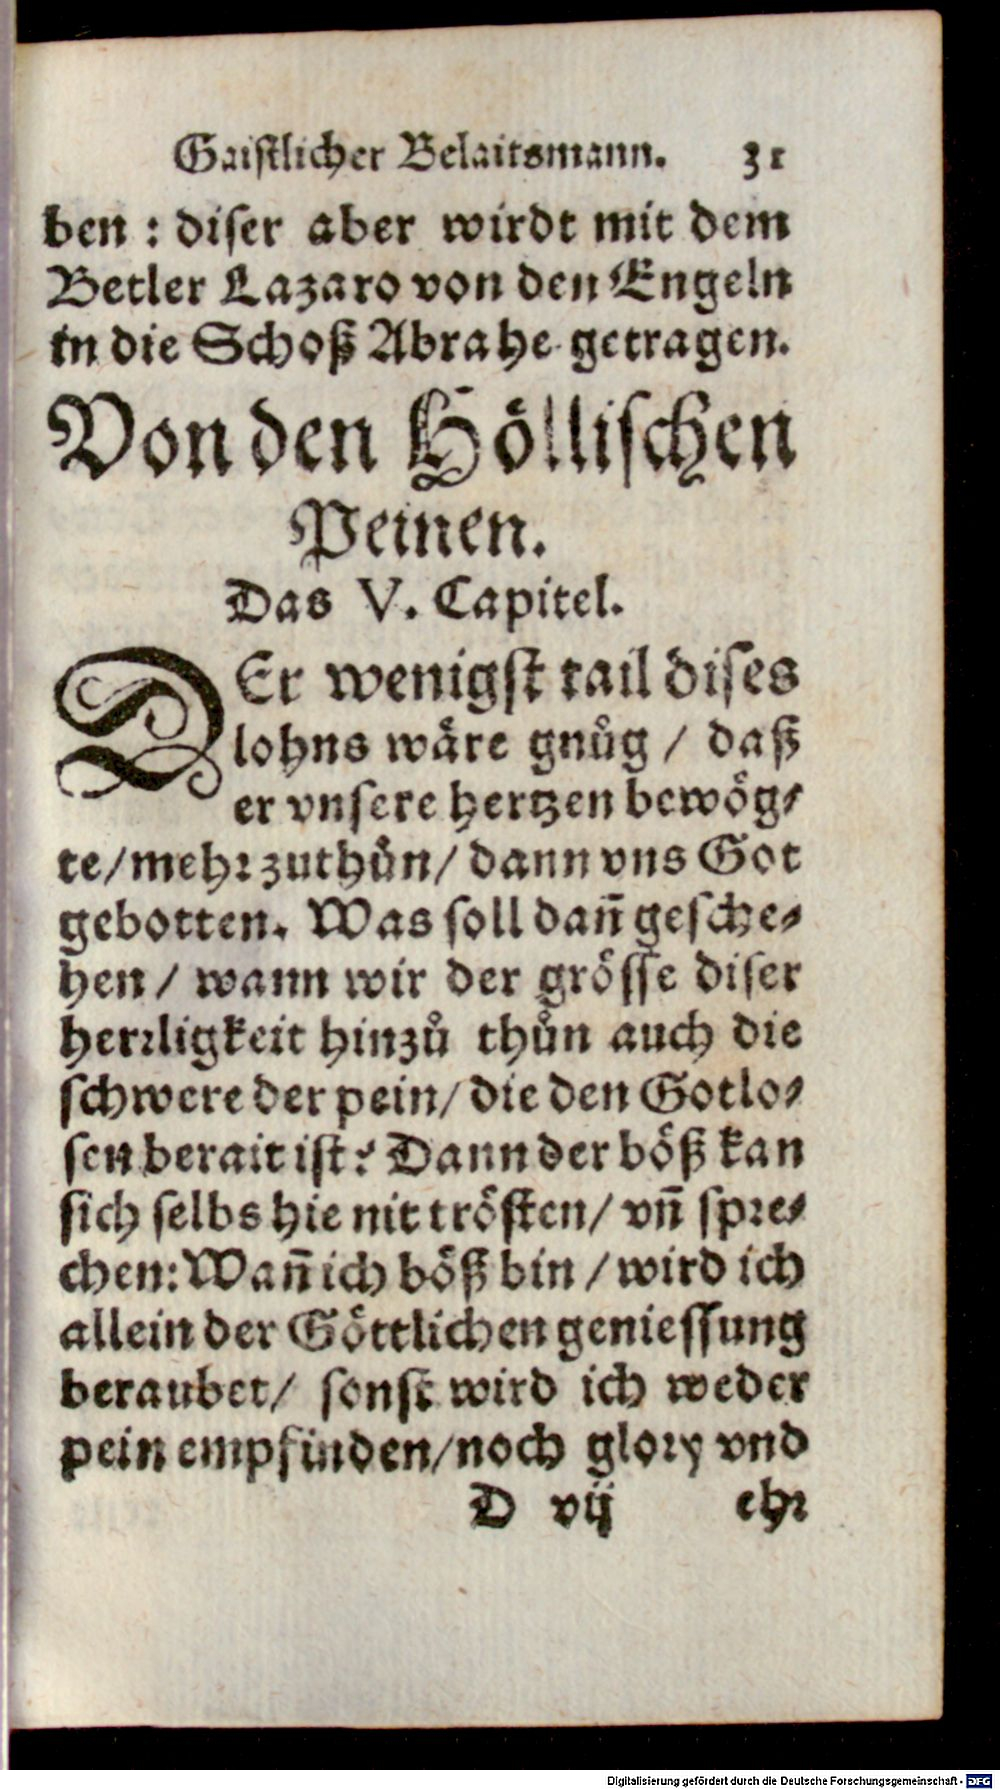 Gaistlicher Belaitsmann. 31
ben : diser aber wirdt mit dem
Betler Lazaro von den Engeln
in die Schoß Abrahe getragen.
Von den Höllischen
Peinen.
Das V. Capitel.
DEr wenigst tail dises
lohns wäre gnůg / daß
er vnsere hertzen bewög-
te / mehr zuthůn / dann vns Got
gebotten. Was soll dañ gesche-
hen / wann wir der grösse diser
herrligkeit hinzů thůn auch die
schwere der pein / die den Gotlo-
sen berait ist? Dann der böß kan
sich selbs hie nit trösten / vñ spre-
chen: Wañ ich böß bin / wird ich
allein der Göttlichen geniessung
beraubet / sonst wird ich weder
pein empfinden / noch glory vnd
D vij ehr
Digitalisierung gefördert durch die Deutsche Forschungsgemeinschaft - DFG